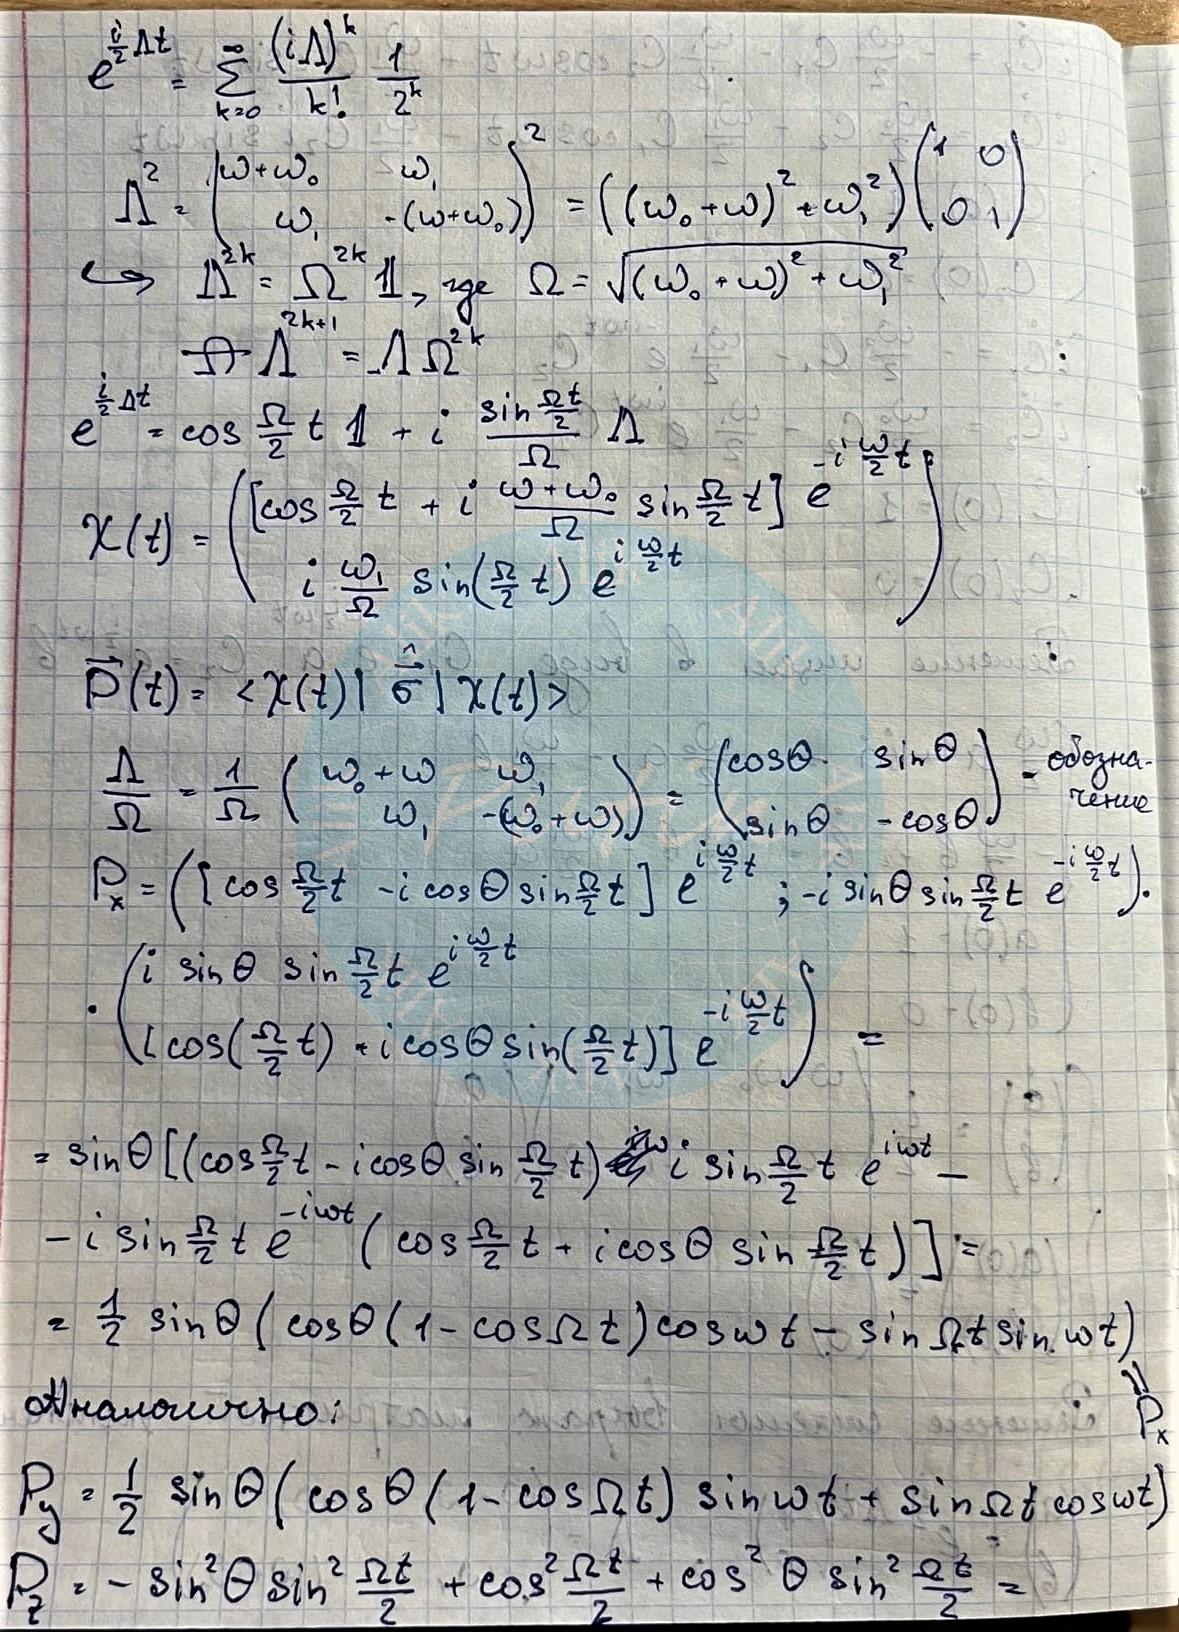 e^{\frac{i}{2}Λt} = \sum_{k=0}^{∞} \frac{(iΛ)^k}{k!} \frac{1}{2^k}
Λ^2 = \begin{pmatrix} ω+ω_0 & ω_1 \\ ω_1 & -(ω+ω_0) \end{pmatrix}^2 = ((ω_0+ω)^2+ω_1^2) \begin{pmatrix} 1 & 0 \\ 0 & 1 \end{pmatrix}
↪ Λ^{2k} = Ω^{2k} 𝟙, где Ω = \sqrt{(ω_0+ω)^2+ω_1^2}
Λ^{2k+1} = ΛΩ^{2k}
e^{\frac{i}{2}Λt} = cos \frac{Ω}{2} t 𝟙 + i \frac{sin \frac{Ωt}{2}}{Ω} Λ
χ(t) = \begin{pmatrix} [cos \frac{Ω}{2} t + i \frac{ω+ω_0}{Ω} sin \frac{Ω}{2} t] e^{-i\frac{ω}{2}t} \\ i \frac{ω_1}{Ω} sin(\frac{Ω}{2} t) e^{i\frac{ω}{2}t} \end{pmatrix}
\vec{P}(t) = <χ(t)| \hat{\vec{σ}} |χ(t)>
\frac{Λ}{Ω} = \frac{1}{Ω} \begin{pmatrix} ω_0+ω & ω_1 \\ ω_1 & -(ω_0+ω) \end{pmatrix} = \begin{pmatrix} cosθ & sinθ \\ sinθ & -cosθ \end{pmatrix} - обозна-
чение
P_x = ([cos \frac{Ω}{2}t - i cosθ sin \frac{Ω}{2}t] e^{i\frac{ω}{2}t} ; -i sinθ sin \frac{Ω}{2}t e^{-i\frac{ω}{2}t}) ·
· \begin{pmatrix} i sinθ sin \frac{Ω}{2}t e^{i\frac{ω}{2}t} \\ [cos(\frac{Ω}{2}t) + i cosθ sin(\frac{Ω}{2}t)] e^{-i\frac{ω}{2}t} \end{pmatrix} =
= sinθ [(cos \frac{Ω}{2}t - i cosθ sin \frac{Ω}{2}t) i sin \frac{Ω}{2}t e^{iωt} -
- i sin \frac{Ω}{2}t e^{-iωt} (cos \frac{Ω}{2}t + i cosθ sin \frac{Ω}{2}t)] =
= \frac{1}{2} sinθ (cosθ (1 - cosΩt) cosωt - sinΩt sinωt)
= P_x
Аналогично:
P_y = \frac{1}{2} sinθ (cosθ (1 - cosΩt) sinωt + sinΩt cosωt)
P_z = - sin^2θ sin^2 \frac{Ωt}{2} + cos^2 \frac{Ωt}{2} + cos^2θ sin^2 \frac{Ωt}{2} =